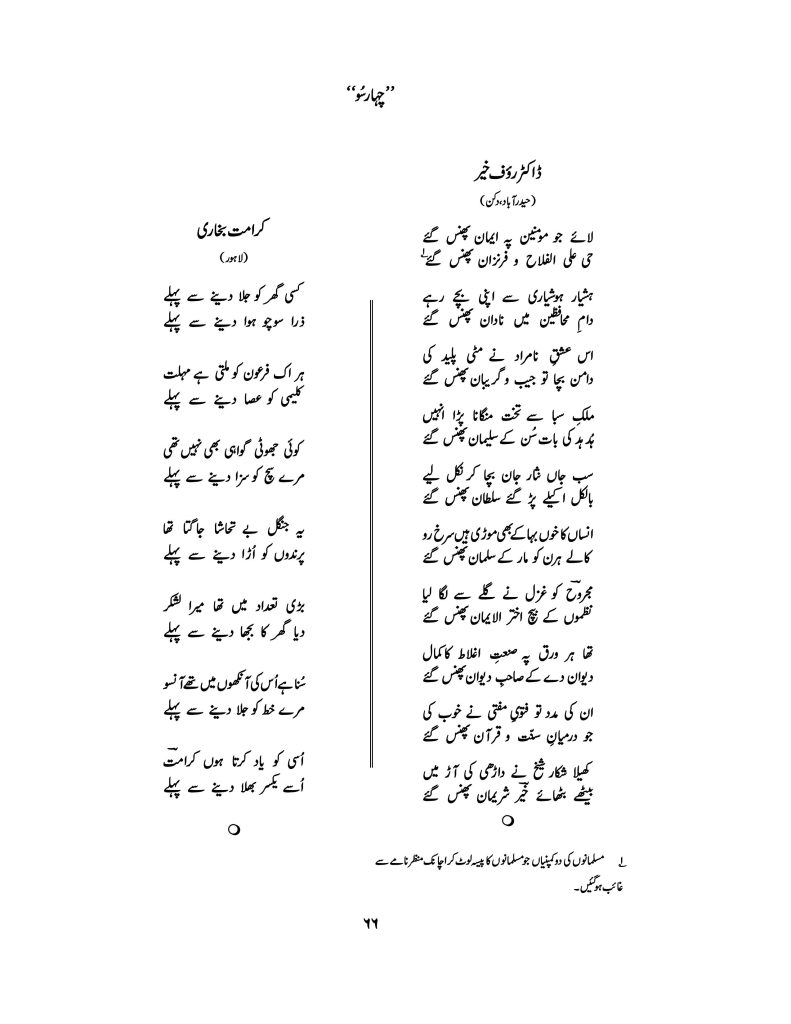 ’’چہارسُو‘‘
ڈاکٹر رؤف خیر
(حیدرآباد، دکن)
لائے جو مومنین پہ ایمان پھنس گئے
حی علی الفلاح و فرنزان پھنس گئے ۱؎
ہشیار ہوشیاری سے اپنی بچے رہے
دامِ محافظین میں نادان پھنس گئے
اس عشقِ نامراد نے مٹی پلید کی
دامن بچا تو جیب و گریبان پھنس گئے
ملکِ سبا سے تخت منگانا پڑا انہیں
ہُد ہُد کی بات سُن کے سلیمان پھنس گئے
سب جاں نثار جان بچا کر نکل لیے
بالکل اکیلے پڑ گئے سلطان پھنس گئے
انساں کا خوں بہا کے بھی موڑی ہیں سرخ رو
کالے ہرن کو مار کے سلمان پھنس گئے
مجروحؔ کو غزل نے گلے سے لگا لیا
نظموں کے بیچ اختر الایمان پھنس گئے
تھا ہر ورق پہ صنعتِ اغلاط کا کمال
دیوان دے کے صاحبِ دیوان پھنس گئے
ان کی مدد تو فتویِ مفتی نے خوب کی
جو درمیانِ سنّت و قرآن پھنس گئے
کھیلا شکار شیخ نے داڑھی کی آڑ میں
بیٹھے بٹھائے خیرؔ شریمان پھنس گئے
کرامت بخاری
(لاہور)
کسی گھر کو جلا دینے سے پہلے
ذرا سوچو ہوا دینے سے پہلے
ہر اک فرعون کو ملتی ہے مہلت
کلیمی کو عصا دینے سے پہلے
کوئی جھوٹی گواہی بھی نہیں تھی
مرے سچ کو سزا دینے سے پہلے
یہ جنگل بے تحاشا جاگتا تھا
پرندوں کو اُڑا دینے سے پہلے
بڑی تعداد میں تھا میرا لشکر
دیا گھر کا بجھا دینے سے پہلے
سُنا ہے اُس کی آنکھوں میں تھے آنسو
مرے خط کو جلا دینے سے پہلے
اُسی کو یاد کرتا ہوں کرامتؔ
اُسے یکسر بھلا دینے سے پہلے
۱؎ مسلمانوں کی دو کمپنیاں جو مسلمانوں کا پیسہ لوٹ کر اچانک منظر نامے سے
غائب ہوگئیں۔
۶۶